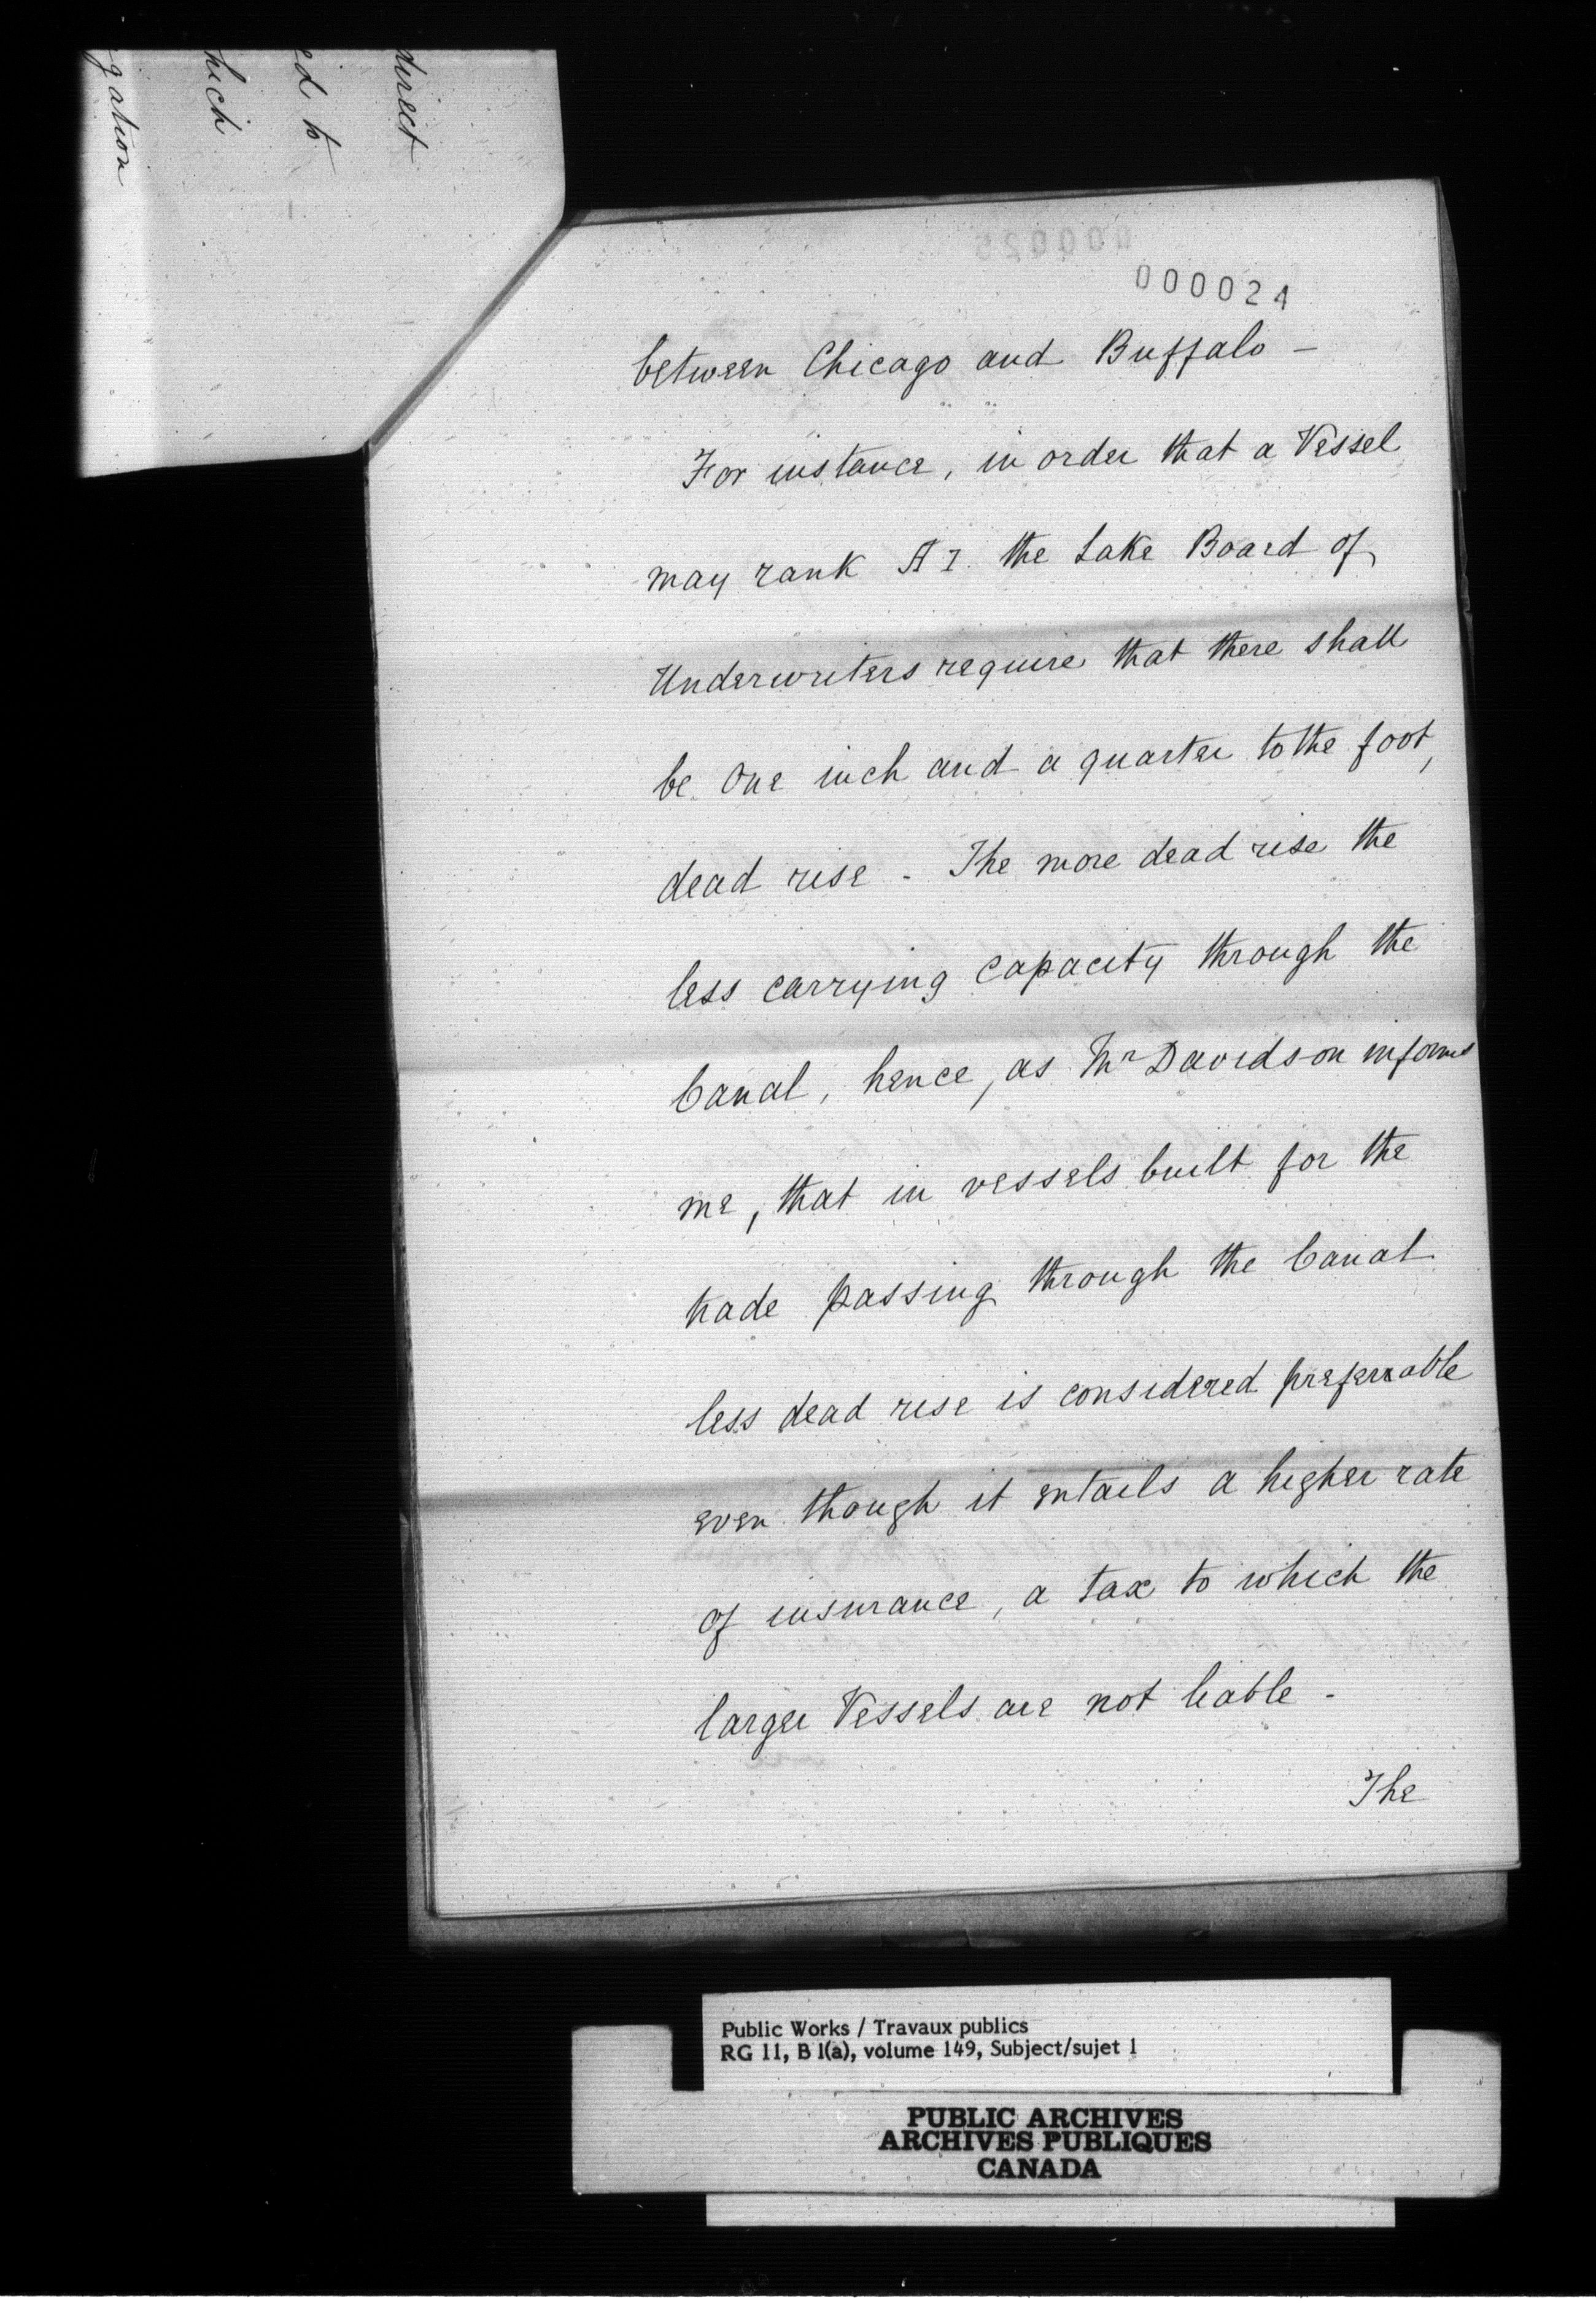 direct
ed to
hich
gation
000025
000024
between Chicago and Buffalo -
For instance, in order that a Vessel
may rank A 1. the Lake Board of
Underwriters require that there shall
be One inch and a quarter to the foot,
dead rise - The more dead rise the
less carrying capacity through the
Canal, hence, as Mr Davidson informs
me, that in vessels built for the
trade passing through the Canal
less dead rise is considered preferrable
even though it entails a higher rate
of insurance, a tax to which the
larger Vessels are not liable -
The
Public Works / Travaux publics
RG 11, B 1(a), volume 149, Subject/sujet 1
PUBLIC ARCHIVES
ARCHIVES PUBLIQUES
CANADA